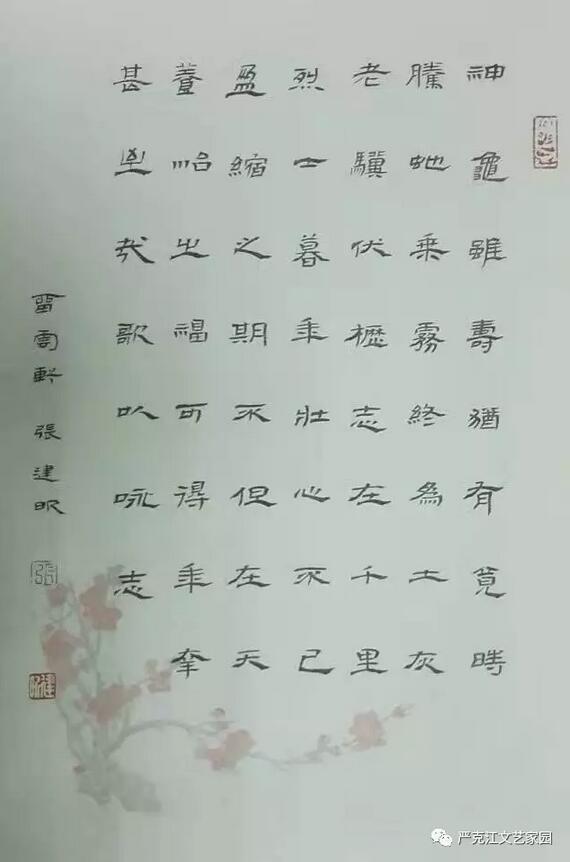 神龜雖壽猶有竟時
騰虵乘霧終為土灰
老驥伏櫪志在千里
烈士暮年壯心不已
盈縮之期不但在天
養怡之福可得年幸
甚至哉歌以咏志
留雲軒 張建明
严克江文艺家园